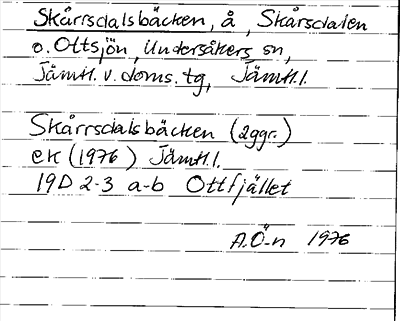 Skårrsdalsbäcken, å, Skårsdalen
o. Ottsjön, Undersåkers sn,
Jämtl. v. doms. tg, Jämtl. l.
Skårrsdalsbäcken (2ggr.)
ek (1976) Jämtl. l.
19D 2-3 a-b Ottfjället
A.Ö-n 1976